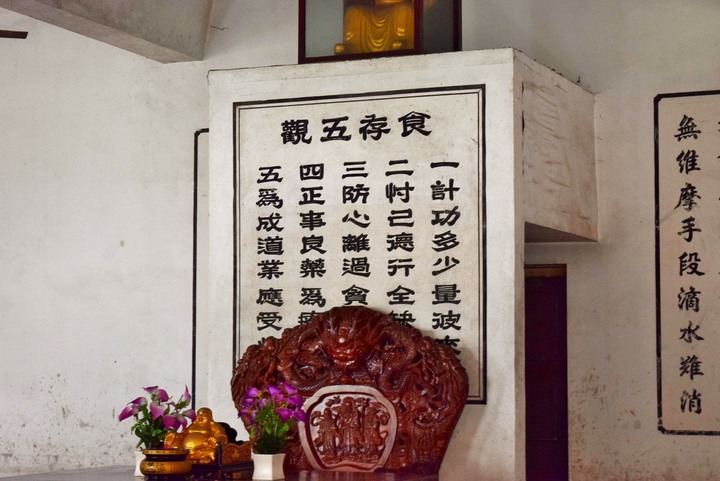 食存五觀
一計功多少量彼來
二忖己德行全缺
三防心離過貪
四正事良藥爲療
五爲成道業應受
無維摩手段滴水難消